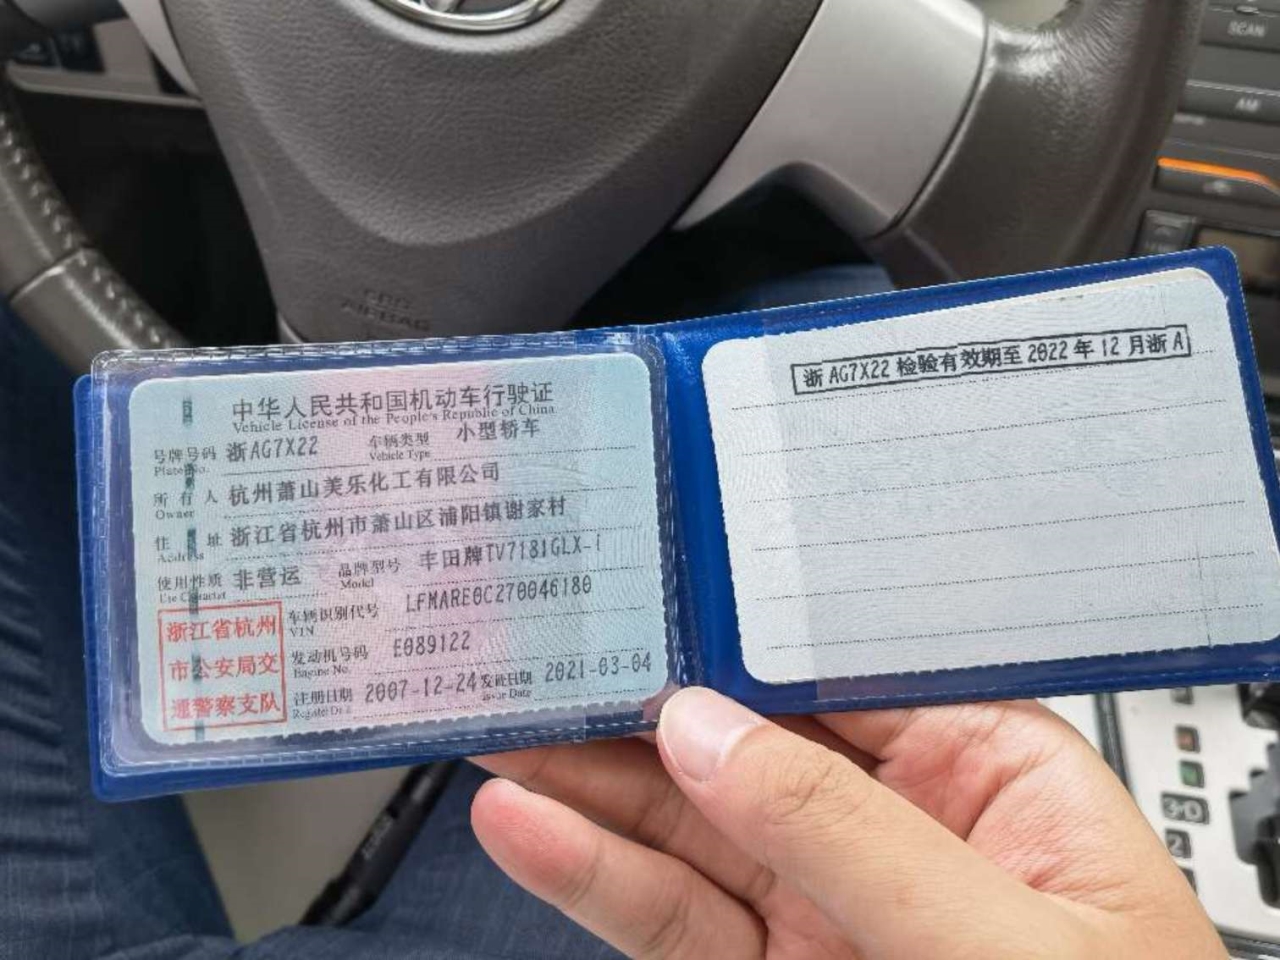 SCAN
AM
SRS
AIRBAG
中华人民共和国机动车行驶证
Vehicle License of the People's Republic of China
号牌号码 浙AG7X22 车辆类型 小型轿车
Plate No. Vehicle Type
所有人 杭州萧山美乐化工有限公司
Owner
住址 浙江省杭州市萧山区浦阳镇谢家村
Address
使用性质 非营运 品牌型号 丰田牌TV7181GLX-i
Use Character Model
车辆识别代号 LFMARE0C270046180
VIN
发动机号码 E089122
Engine No.
注册日期 2007-12-24 发证日期 2021-03-04
Register Date Issue Date
浙江省杭州
市公安局交
通警察支队
浙AG7X22 检验有效期至 2022 年 12 月浙 A
3-D
2